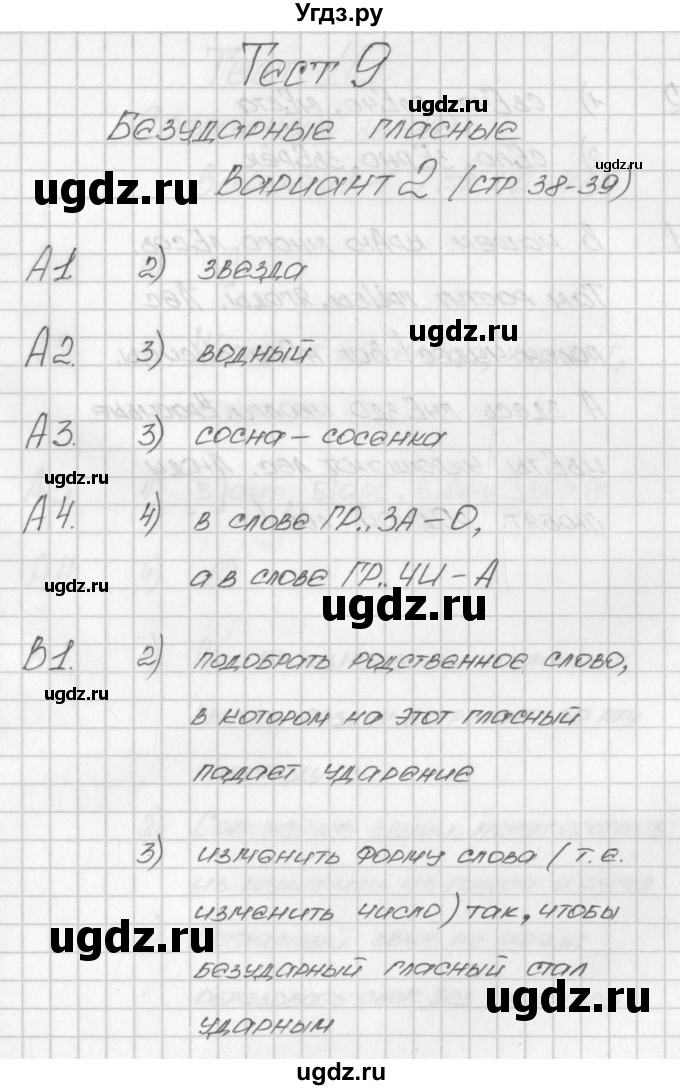 Угдз.ру
Тест 9
ugdz.ru
Безударные гласные
ugdz.ru
ugdz.ru
Вариант 2 (стр 38-39)
А1 2) звезда
ugdz.ru
А2. 3) водный
А3. 3) сосна – сосенка
ugdz.ru
А4. 4) в слове ГР..ЗА – О,
ugdz.ru
а в слове ГР..ЧИ – А
ugdz.ru
В1. 2) подобрать родственное слово,
ugdz.ru
в котором на этот гласный
падает ударение
3) изменить форму слова (т.е.
изменить число) так, чтобы
ugdz.ru
безударный гласный стал
ugdz.ru
ударным
ugdz.ru